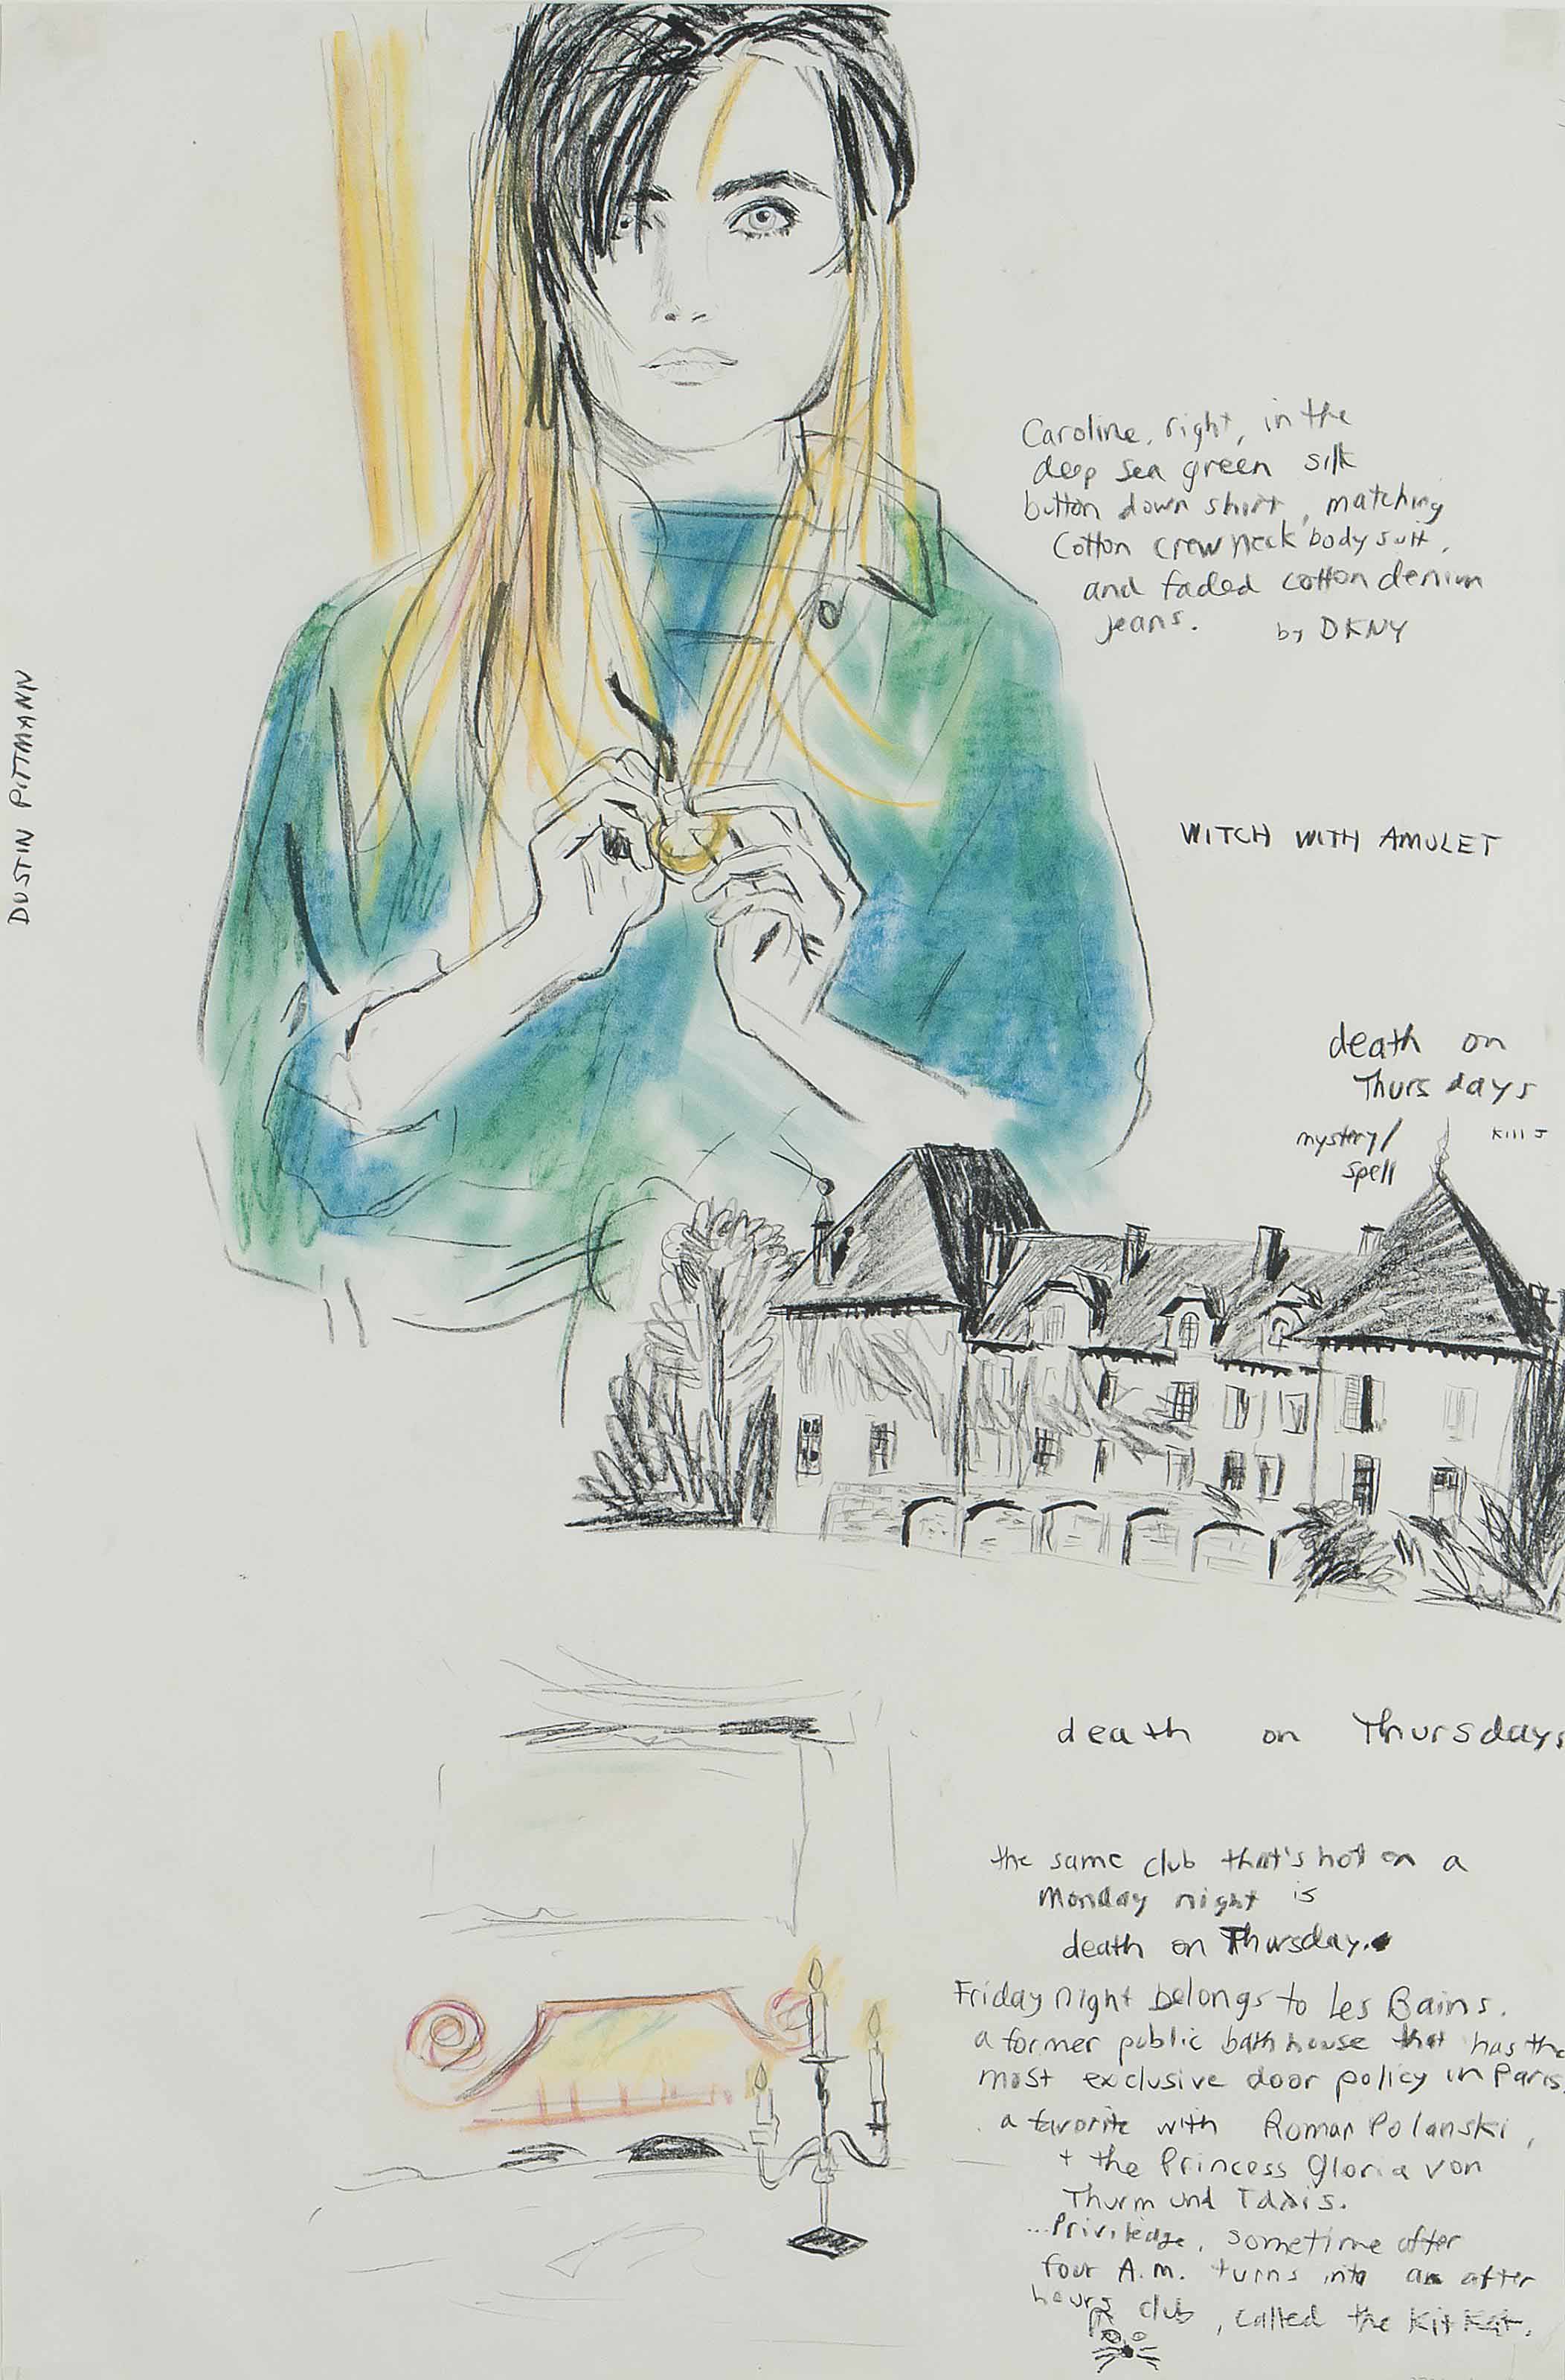 Caroline, right, in the
deep sea green silk
button down shirt, matching
Cotton crewneck body suit,
and faded cotton denim
jeans. by DKNY
DUSTIN PITTMANN
WITCH WITH AMULET
death on
Thursdays
mystery/
spell
kills
death on Thursdays
the same club that's hot on a
Monday night is
death on Thursday.
Friday night belongs to Les Bains.
a former public bath house that has the
most exclusive door policy in Paris
a favorite with Roman Polanski,
+ the Princess Gloria von
Thurm und Taxis.
...Priviledge, sometime after
four A.M. turns into an after
hours club, called the Kit Kat.